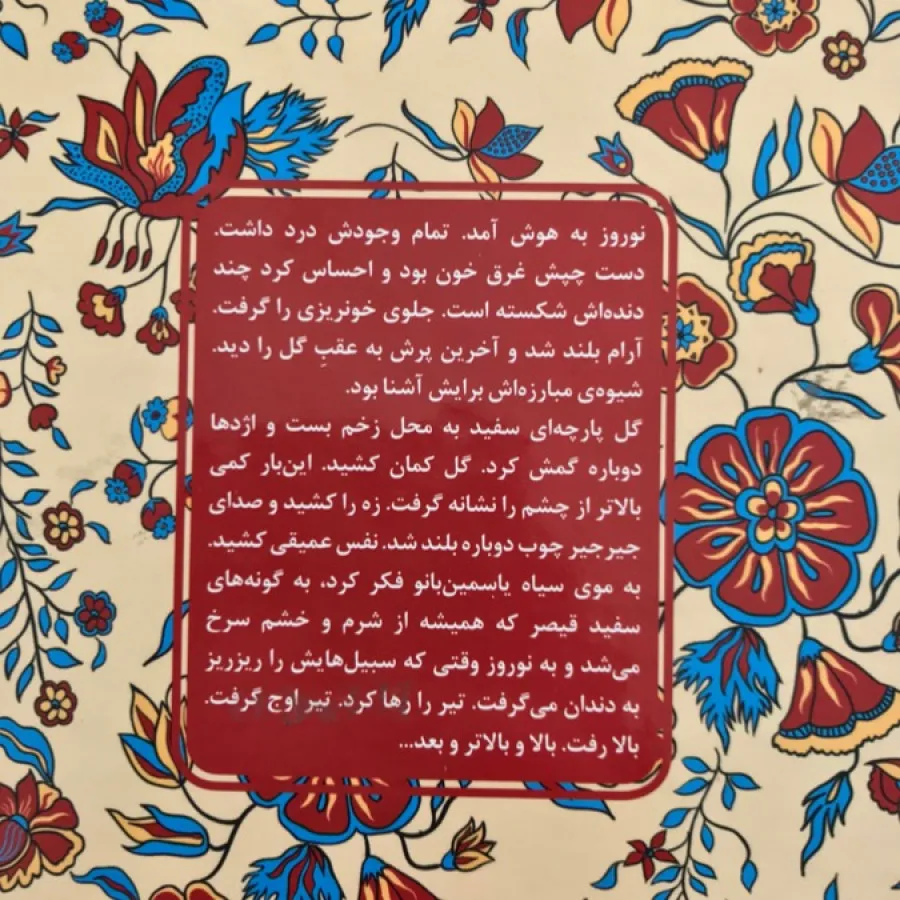 نوروز به هوش آمد. تمام وجودش درد داشت.
دست چپش غرق خون بود و احساس کرد چند
دنده‌اش شکسته است. جلوی خونریزی را گرفت.
آرام بلند شد و آخرین پرش به عقبِ گل را دید.
شیوه‌ی مبارزه‌اش برایش آشنا بود.
گل پارچه‌ای سفید به محل زخم بست و اژدها
دوباره گمش کرد. گل کمان کشید. این‌بار کمی
بالاتر از چشم را نشانه گرفت. زه را کشید و صدای
جیرجیر چوب دوباره بلند شد. نفس عمیقی کشید.
به موی سیاه یاسمین‌بانو فکر کرد، به گونه‌های
سفید قیصر که همیشه از شرم و خشم سرخ
می‌شد و به نوروز وقتی که سبیل‌هایش را ریزریز
به دندان می‌گرفت. تیر را رها کرد. تیر اوج گرفت.
بالا رفت. بالا و بالاتر و بعد...